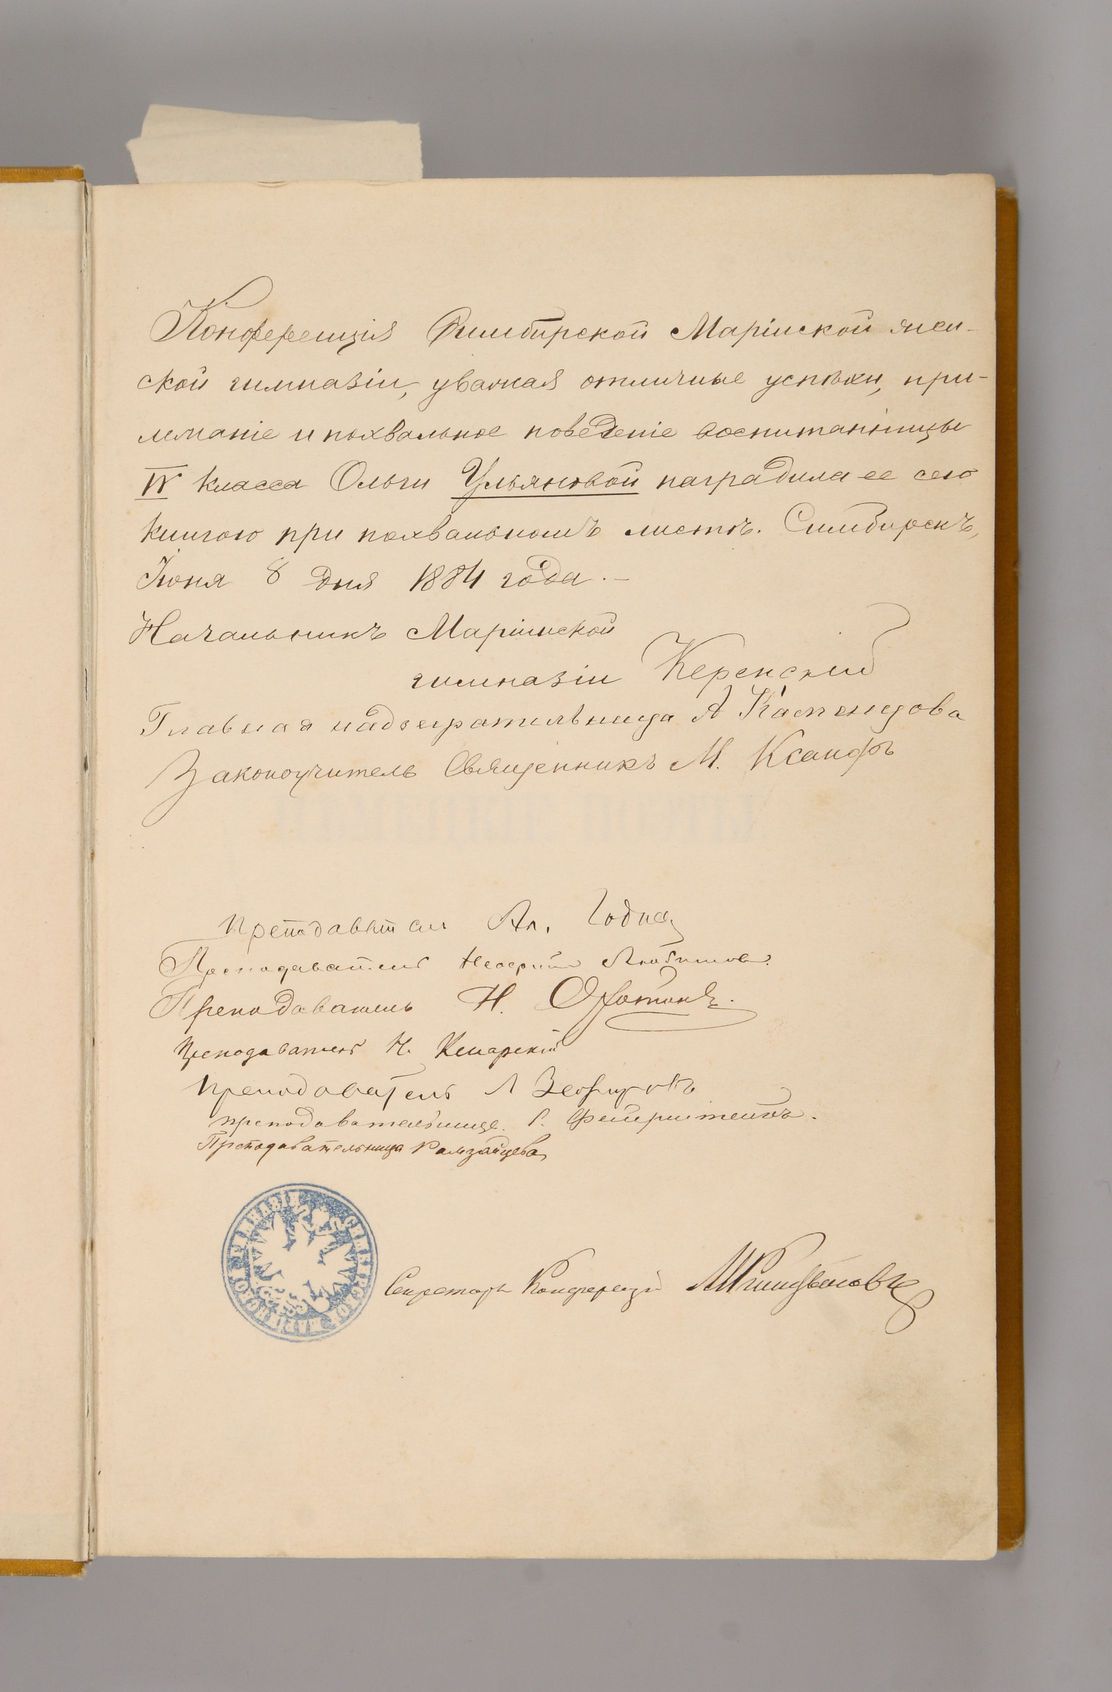 Конференція Симбирской Маріинской жен-
ской гимназіи, уважая отличные успѣхи, при-
лежаніе и похвальное поведеніе воспитанницы
IV класса Ольги Ульяновой наградила ее сею
книгою при похвальномъ листѣ. Симбирскъ,
Іюня 8 дня 1884 года. –
Начальникъ Маріинской
гимназіи Керенскій
Главная надзирательница А
Законоучитель Священникъ М. Ксанфъ
Преподаватель Ал.
Преподаватель Любимовъ.
Преподаватель Н. Охотинъ.
Преподаватель Н. Кенарскій
Преподаватель Л Зефировъ
преподавательница.
Преподавательница
СИМБИРСКОЙ МАРІИНСКОЙ ГИМНАЗІИ
Секретарь Конференціи